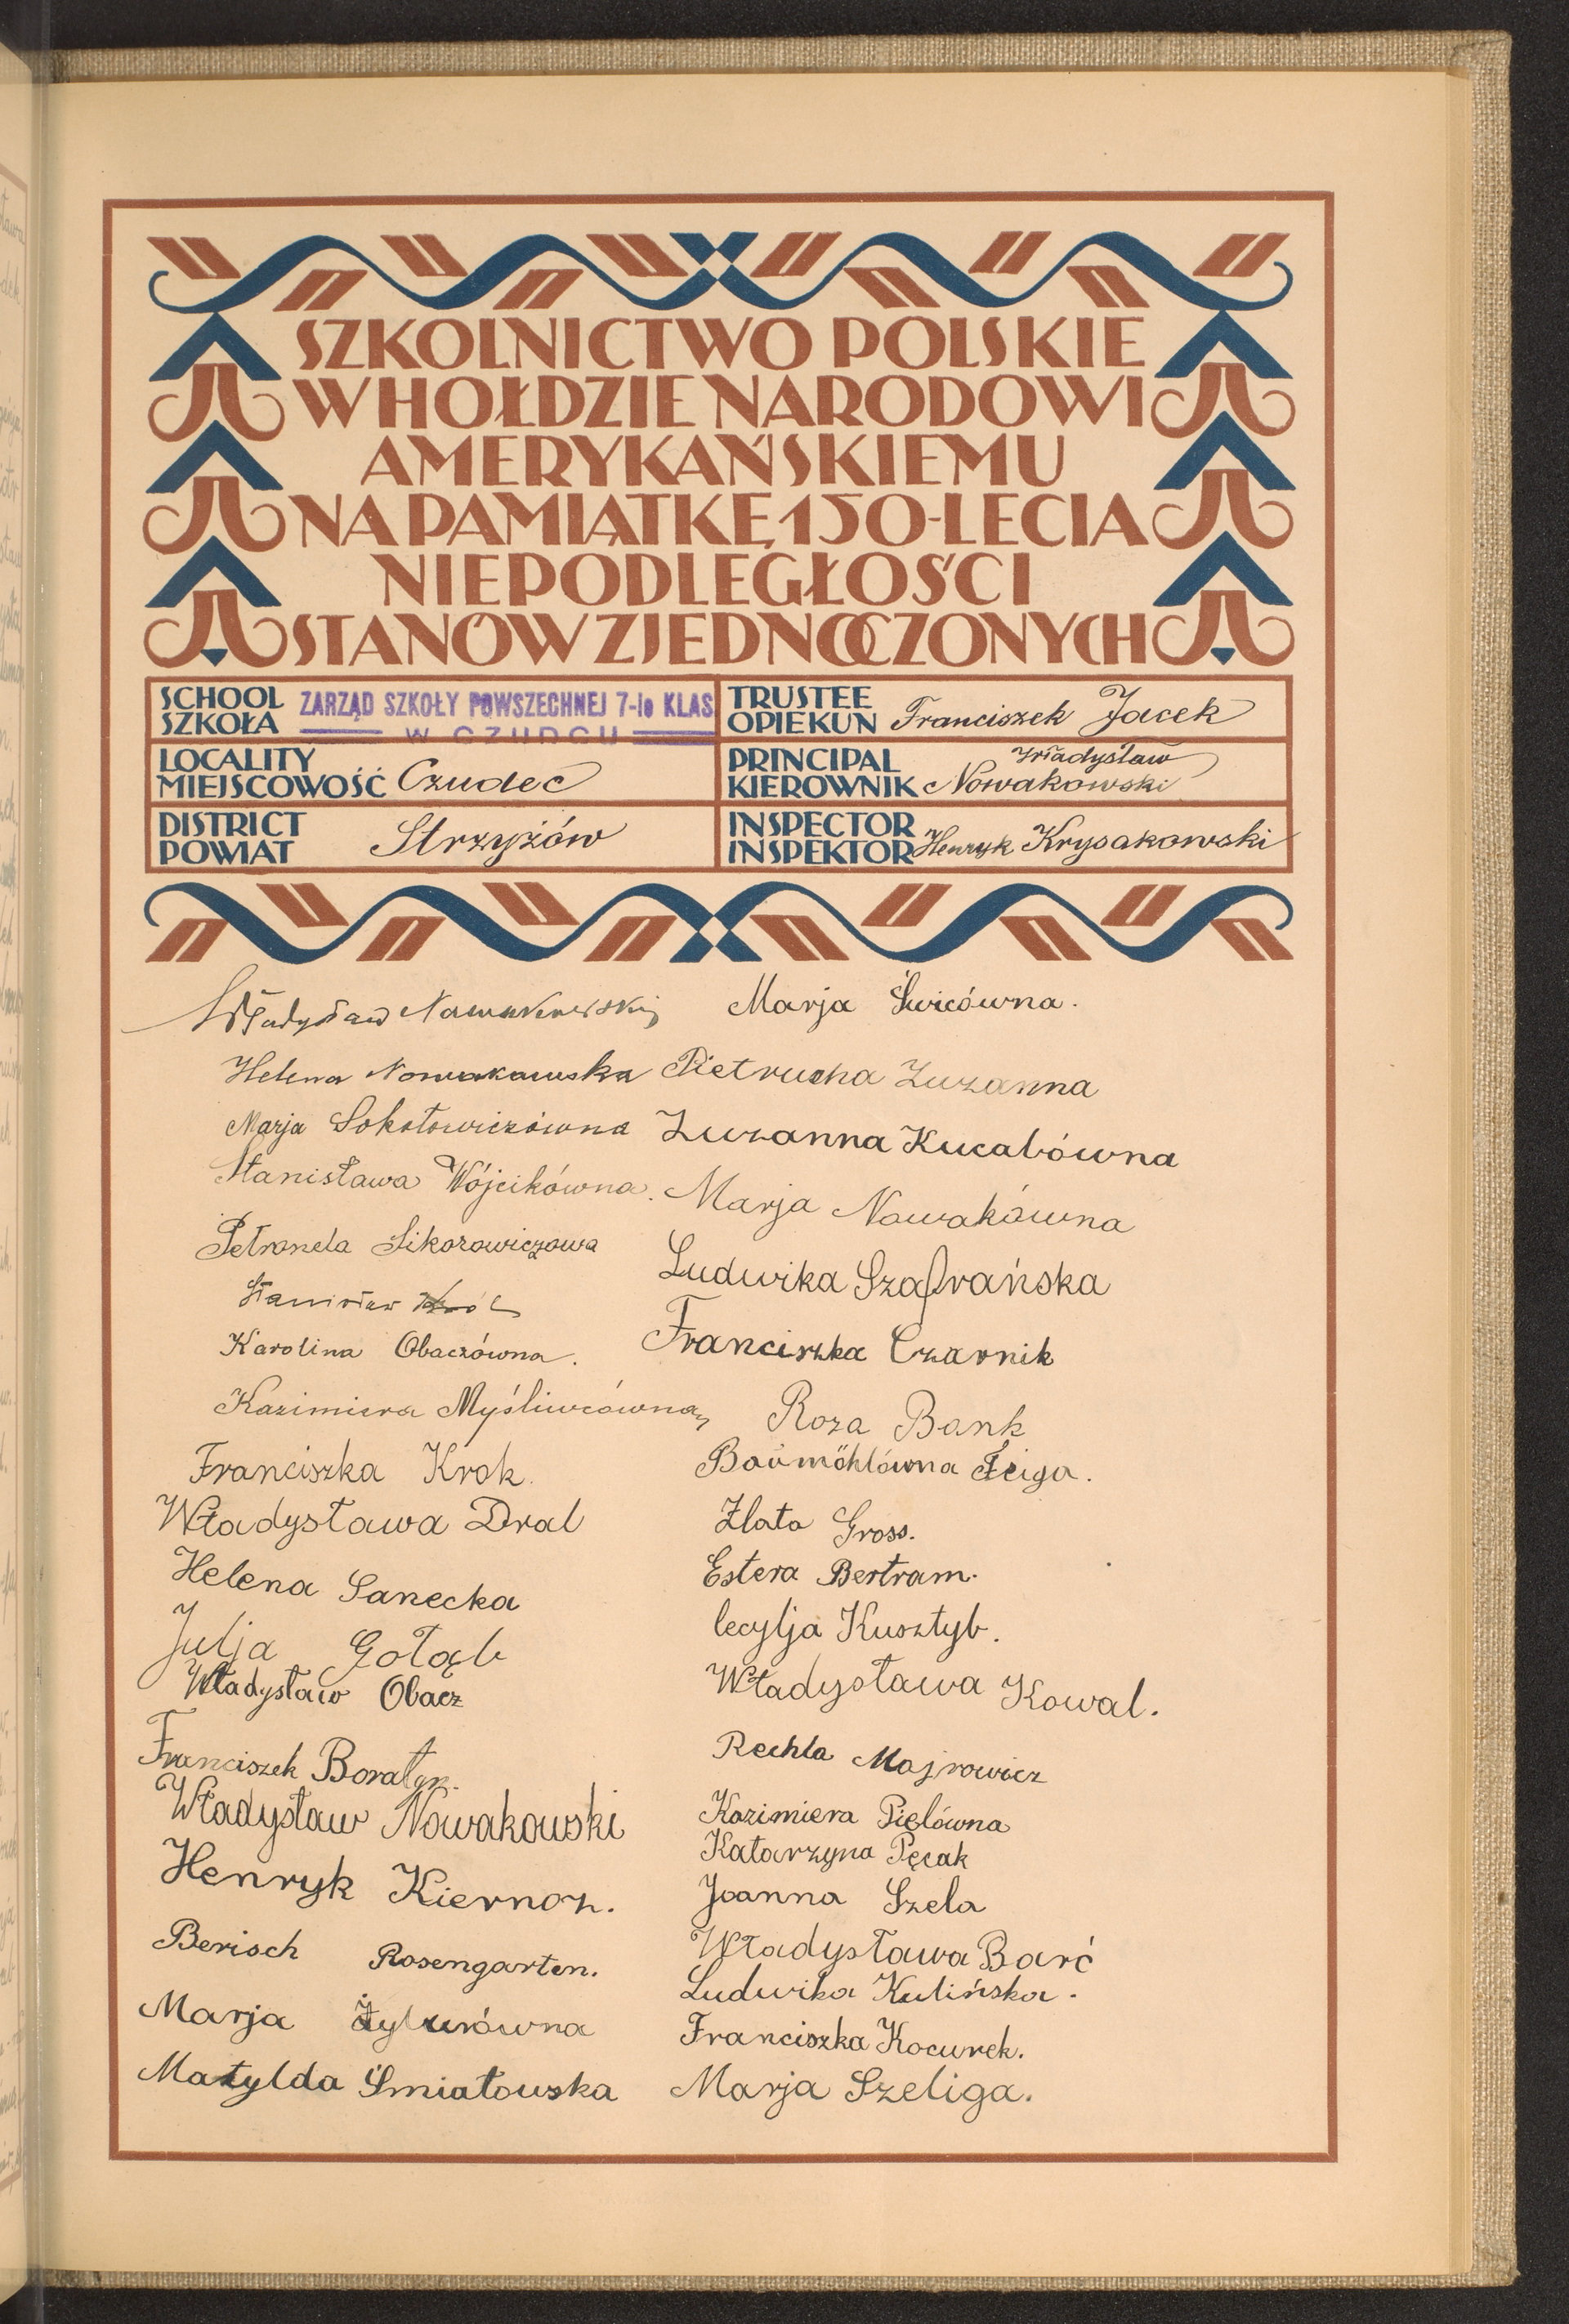 SZKOLNICTWO POLSKIE
W HOŁDZIE NARODOWI
AMERYKAŃSKIEMU
NA PAMIĄTKĘ 150-LECIA
NIEPODLEGŁOŚCI
STANÓW ZJEDNOCZONYCH
SCHOOL
SZKOŁA
ZARZĄD SZKOŁY POWSZECHNEJ 7-io KLAS
W CZUDCU
TRUSTEE
OPIEKUN Franciszek Jacek
LOCALITY
MIEJSCOWOŚĆ Czudec
PRINCIPAL Władysław
KIEROWNIK Nowakowski
DISTRICT
POWIAT Strzyżów
INSPECTOR
INSPEKTOR Henryk Krysakowski
Władysław Nowakowski
Helena Nowakowska
Marja Sokołowiczówna
Stanisława Wójcikówna.
Petronela Sikorowiczowa
Stanisław Król
Karolina Obaczówna.
Kazimiera Myśliwcówna
Franciszka Krok.
Władysława Dral
Helena Sanecka
Julja Gołąb
Władysław Obacz
Franciszek Boratyn.
Władysław Nowakowski
Henryk Kiernoz.
Berisch Rosengarten.
Marja
Matylda Śmiałowska
Marja Świcówna.
Pietrucha Zuzanna
Zuzanna Kucabówna
Marja Nowakówna
Ludwika Szafrańska
Franciszka Czarnik
Roza Bank
Baumöhlówna Feiga.
Zlata Gross.
Estera Bertram.
Cecylja Kusztyb.
Władysława Kowal.
Rechla Majrowicz
Kazimiera Pielówna
Katarzyna Pęcak
Joanna Szela
Władysława Barć
Ludwika Kulińska.
Franciszka Kocurek.
Marja Szeliga.